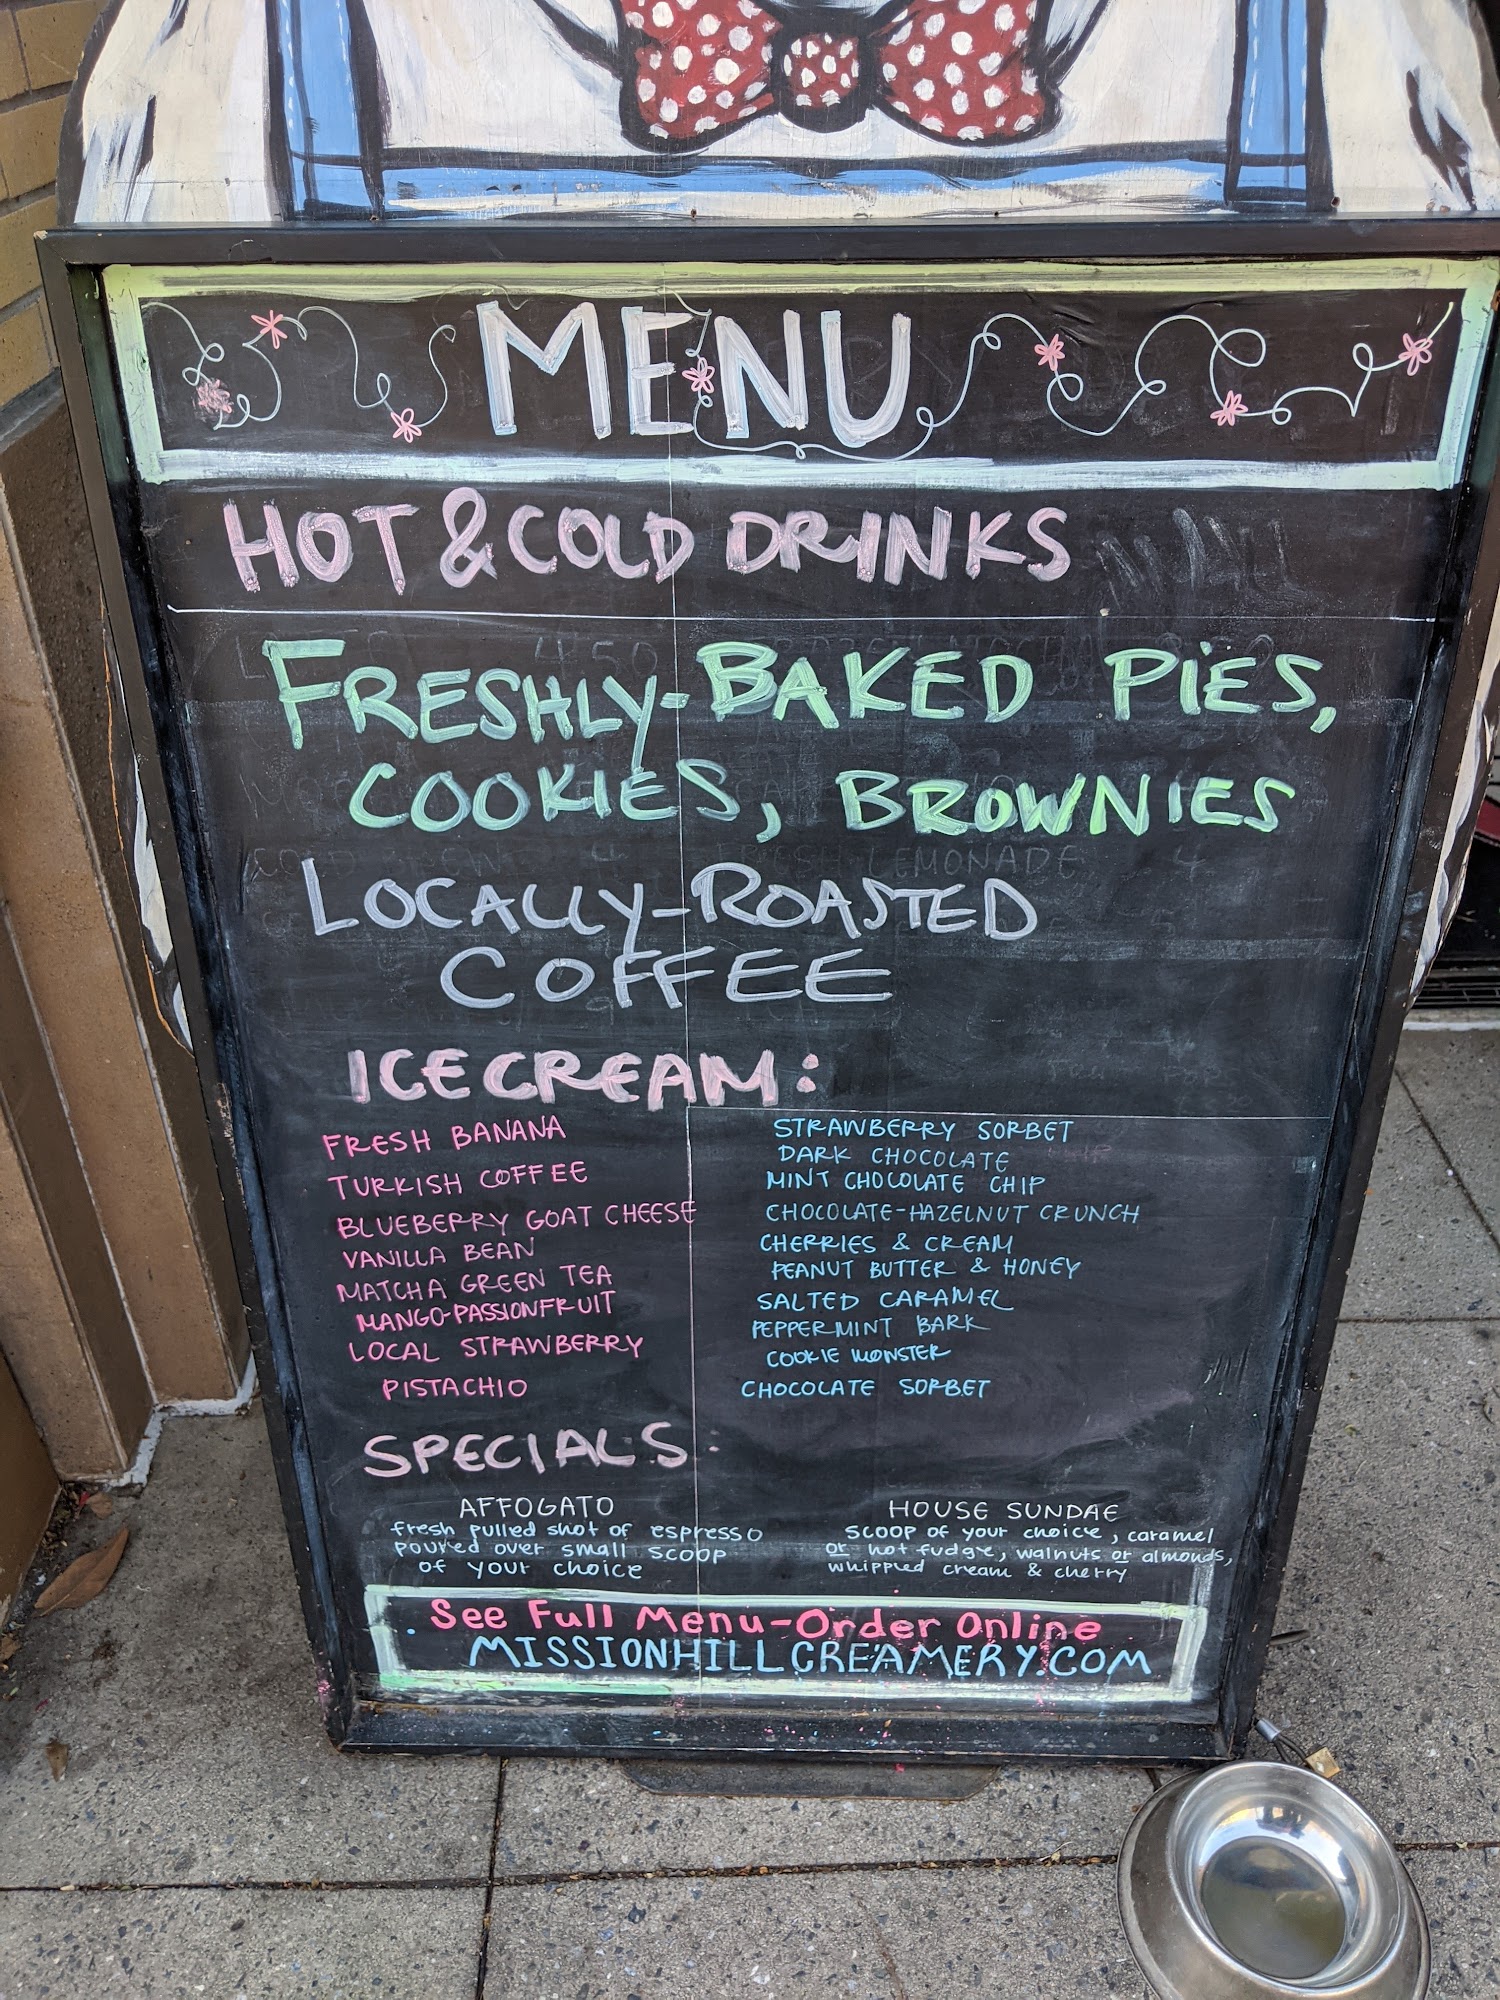 MENU
HOT & COLD DRINKS
FRESHLY-BAKED PIES,
COOKIES, BROWNIES
LOCALLY-ROASTED
COFFEE
ICE CREAM:
FRESH BANANA
TURKISH COFFEE
BLUEBERRY GOAT CHEESE
VANILLA BEAN
MATCHA GREEN TEA
MANGO-PASSIONFRUIT
LOCAL STRAWBERRY
PISTACHIO
STRAWBERRY SORBET
DARK CHOCOLATE
MINT CHOCOLATE CHIP
CHOCOLATE-HAZELNUT CRUNCH
CHERRIES & CREAM
PEANUT BUTTER & HONEY
SALTED CARAMEL
PEPPERMINT BARK
COOKIE MONSTER
CHOCOLATE SORBET
SPECIALS
AFFOGATO
fresh pulled shot of espresso
poured over small scoop
of your choice
HOUSE SUNDAE
scoop of your choice, caramel
or hot fudge, walnuts or almonds,
whipped cream & cherry
See Full Menu-Order Online
MISSIONHILLCREAMERY.COM